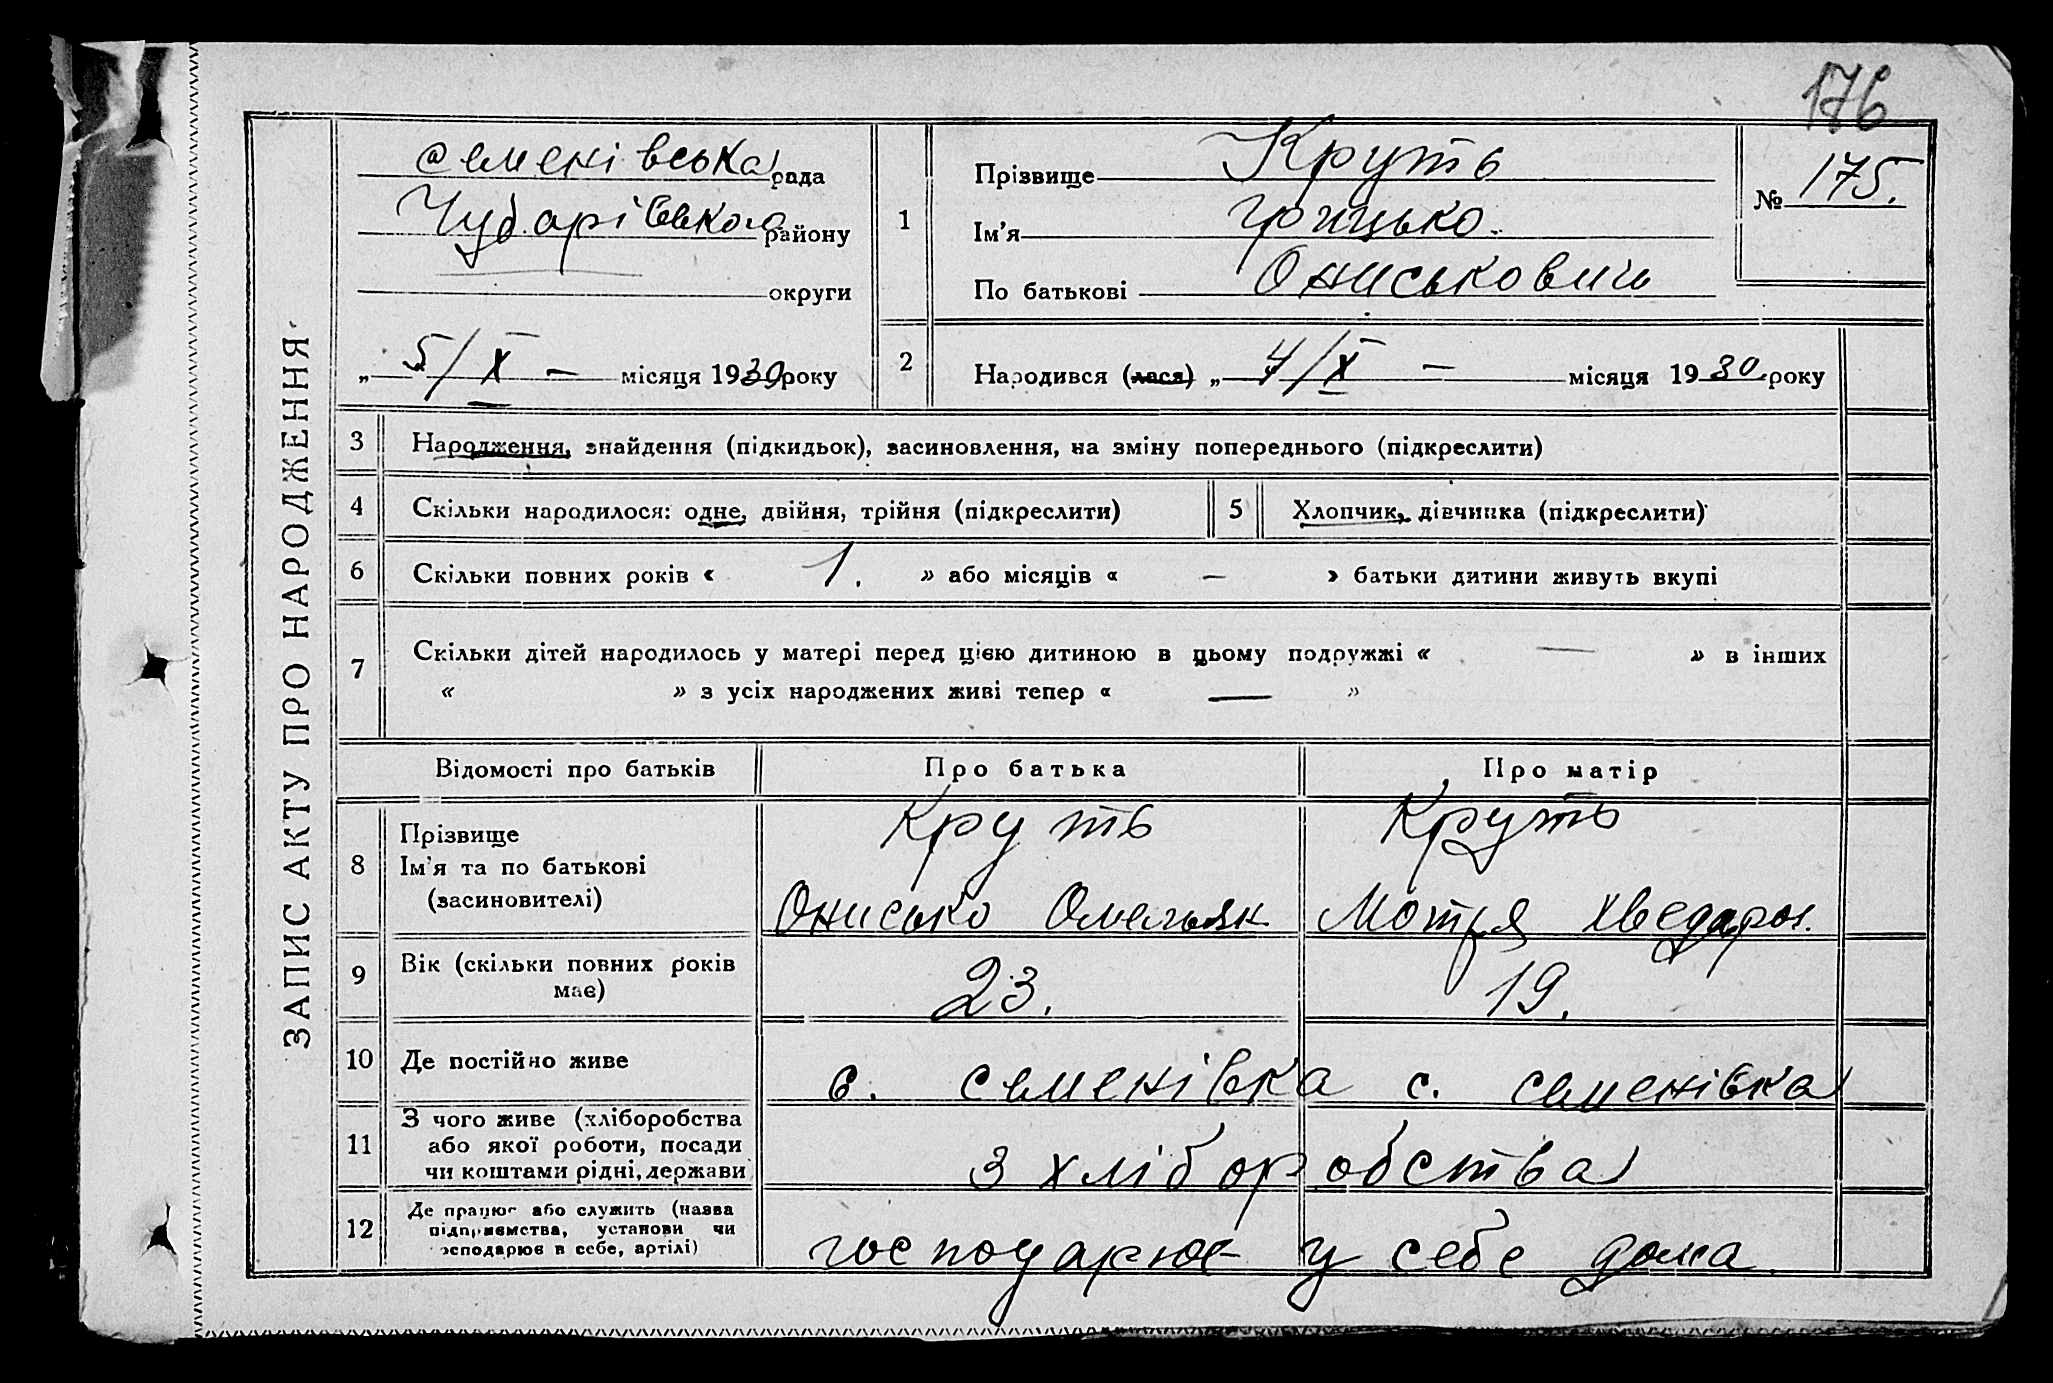 176
ЗАПИС АКТУ ПРО НАРОДЖЕННЯ
семенівська рада
Чубарівського району
округи
„ 5/X – місяця 1930 року
1
Прізвище Круть
Ім’я Грицько
По батькові Ониськович
№ 175.
2
Народився (лася) „ 4/X – місяця 1930 року
3 Народження, знайдення (підкидьок), засиновлення, на зміну попереднього (підкреслити)
4 Скільки народилося: одне, двійня, трійня (підкреслити) 5 Хлопчик, дівчинка (підкреслити)
6 Скільки повних років « 1. » або місяців « – » батьки дитини живуть вкупі
7 Скільки дітей народилось у матері перед цією дитиною в цьому подружжі « — » в інших
« » з усіх народжених живі тепер « — »
Відомості про батьків Про батька Про матір
8 Прізвище
Ім’я та по батькові
(засиновителі)
Круть
Онисько Омельян
Круть
Мотря Хведаров.
9 Вік (скільки повних років
має)
23. 19.
10 Де постійно живе с. семенівка с. семенівка
11 З чого живе (хліборобства
або якої роботи, посади
чи коштами рідні, держави
з хліборобства
12 Де працює або служить (назва
підприємства, установи чи
господарює в себе, артілі)
господарює у себе дома